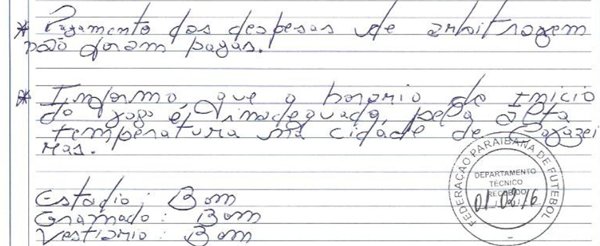 * Pagamento das despesas de arbitragem
não foram pagas.
* Informo, que o horario de inicio
do jogo é inadequado, pela alta
temperatura na cidade de Cajazei
ras.
Estádio: Bom
Gramado: Bom
Vestiario: Bom
FEDERAÇÃO PARAIBANA DE FUTEBOL
DEPARTAMENTO
TÉCNICO
RECEBIDO
01 02 16